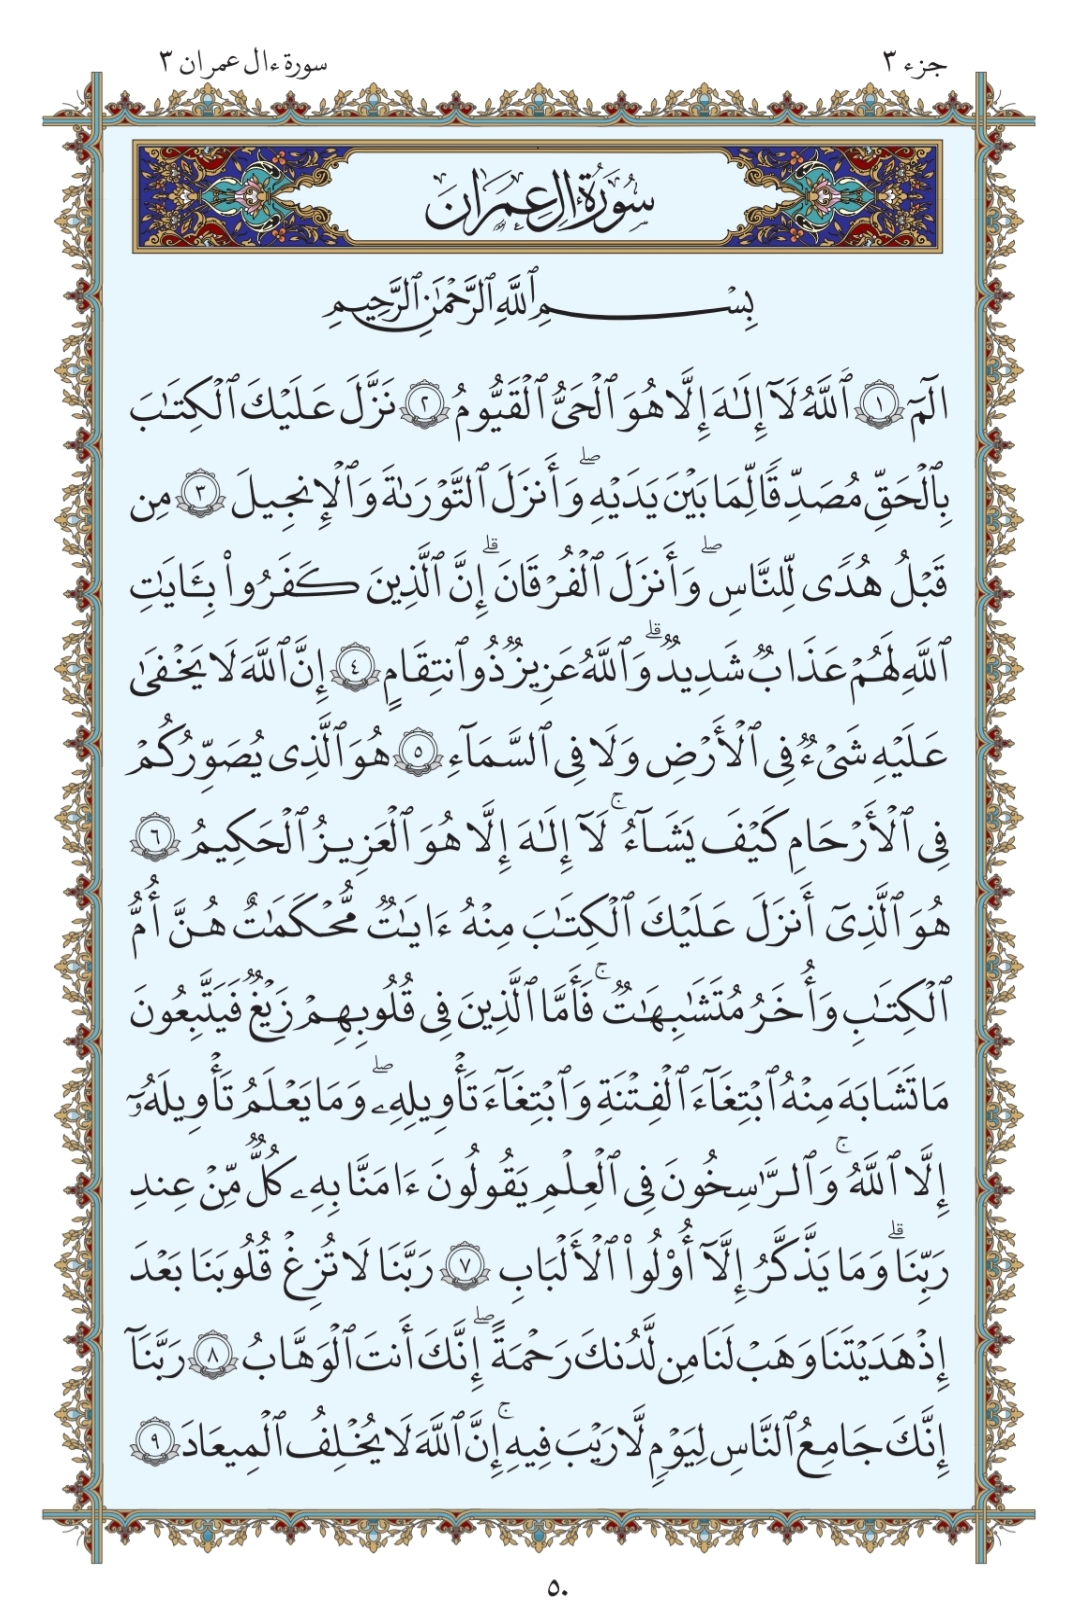 جزء ٣
سورة ءال عمران ٣
سُورَةُ ءَالِ عِمۡرَانَ
بِسۡمِ ٱللَّهِ ٱلرَّحۡمَٰنِ ٱلرَّحِيمِ
الٓمٓ ١ ٱللَّهُ لَآ إِلَٰهَ إِلَّا هُوَ ٱلۡحَيُّ ٱلۡقَيُّومُ ٢ نَزَّلَ عَلَيۡكَ ٱلۡكِتَٰبَ
بِٱلۡحَقِّ مُصَدِّقٗا لِّمَا بَيۡنَ يَدَيۡهِۖ وَأَنزَلَ ٱلتَّوۡرَىٰةَ وَٱلۡإِنجِيلَ ٣ مِن
قَبۡلُ هُدٗى لِّلنَّاسِۖ وَأَنزَلَ ٱلۡفُرۡقَانَۗ إِنَّ ٱلَّذِينَ كَفَرُواْ بِـَٔايَٰتِ
ٱللَّهِ لَهُمۡ عَذَابٞ شَدِيدٞۗ وَٱللَّهُ عَزِيزٞ ذُو ٱنتِقَامٍ ٤ إِنَّ ٱللَّهَ لَا يَخۡفَىٰ
عَلَيۡهِ شَيۡءٞ فِي ٱلۡأَرۡضِ وَلَا فِي ٱلسَّمَآءِ ٥ هُوَ ٱلَّذِي يُصَوِّرُكُمۡ
فِي ٱلۡأَرۡحَامِ كَيۡفَ يَشَآءُۚ لَآ إِلَٰهَ إِلَّا هُوَ ٱلۡعَزِيزُ ٱلۡحَكِيمُ ٦
هُوَ ٱلَّذِيٓ أَنزَلَ عَلَيۡكَ ٱلۡكِتَٰبَ مِنۡهُ ءَايَٰتٞ مُّحۡكَمَٰتٌ هُنَّ أُمُّ
ٱلۡكِتَٰبِ وَأُخَرُ مُتَشَٰبِهَٰتٞۚ فَأَمَّا ٱلَّذِينَ فِي قُلُوبِهِمۡ زَيۡغٞ فَيَتَّبِعُونَ
مَا تَشَٰبَهَ مِنۡهُ ٱبۡتِغَآءَ ٱلۡفِتۡنَةِ وَٱبۡتِغَآءَ تَأۡوِيلِهِۦۖ وَمَا يَعۡلَمُ تَأۡوِيلَهُۥٓ
إِلَّا ٱللَّهُۚ وَٱلرَّٰسِخُونَ فِي ٱلۡعِلۡمِ يَقُولُونَ ءَامَنَّا بِهِۦ كُلّٞ مِّنۡ عِندِ
رَبِّنَاۗ وَمَا يَذَّكَّرُ إِلَّآ أُوْلُواْ ٱلۡأَلۡبَٰبِ ٧ رَبَّنَا لَا تُزِغۡ قُلُوبَنَا بَعۡدَ
إِذۡ هَدَيۡتَنَا وَهَبۡ لَنَا مِن لَّدُنكَ رَحۡمَةًۖ إِنَّكَ أَنتَ ٱلۡوَهَّابُ ٨ رَبَّنَآ
إِنَّكَ جَامِعُ ٱلنَّاسِ لِيَوۡمٖ لَّا رَيۡبَ فِيهِۚ إِنَّ ٱللَّهَ لَا يُخۡلِفُ ٱلۡمِيعَادَ ٩
٥٠